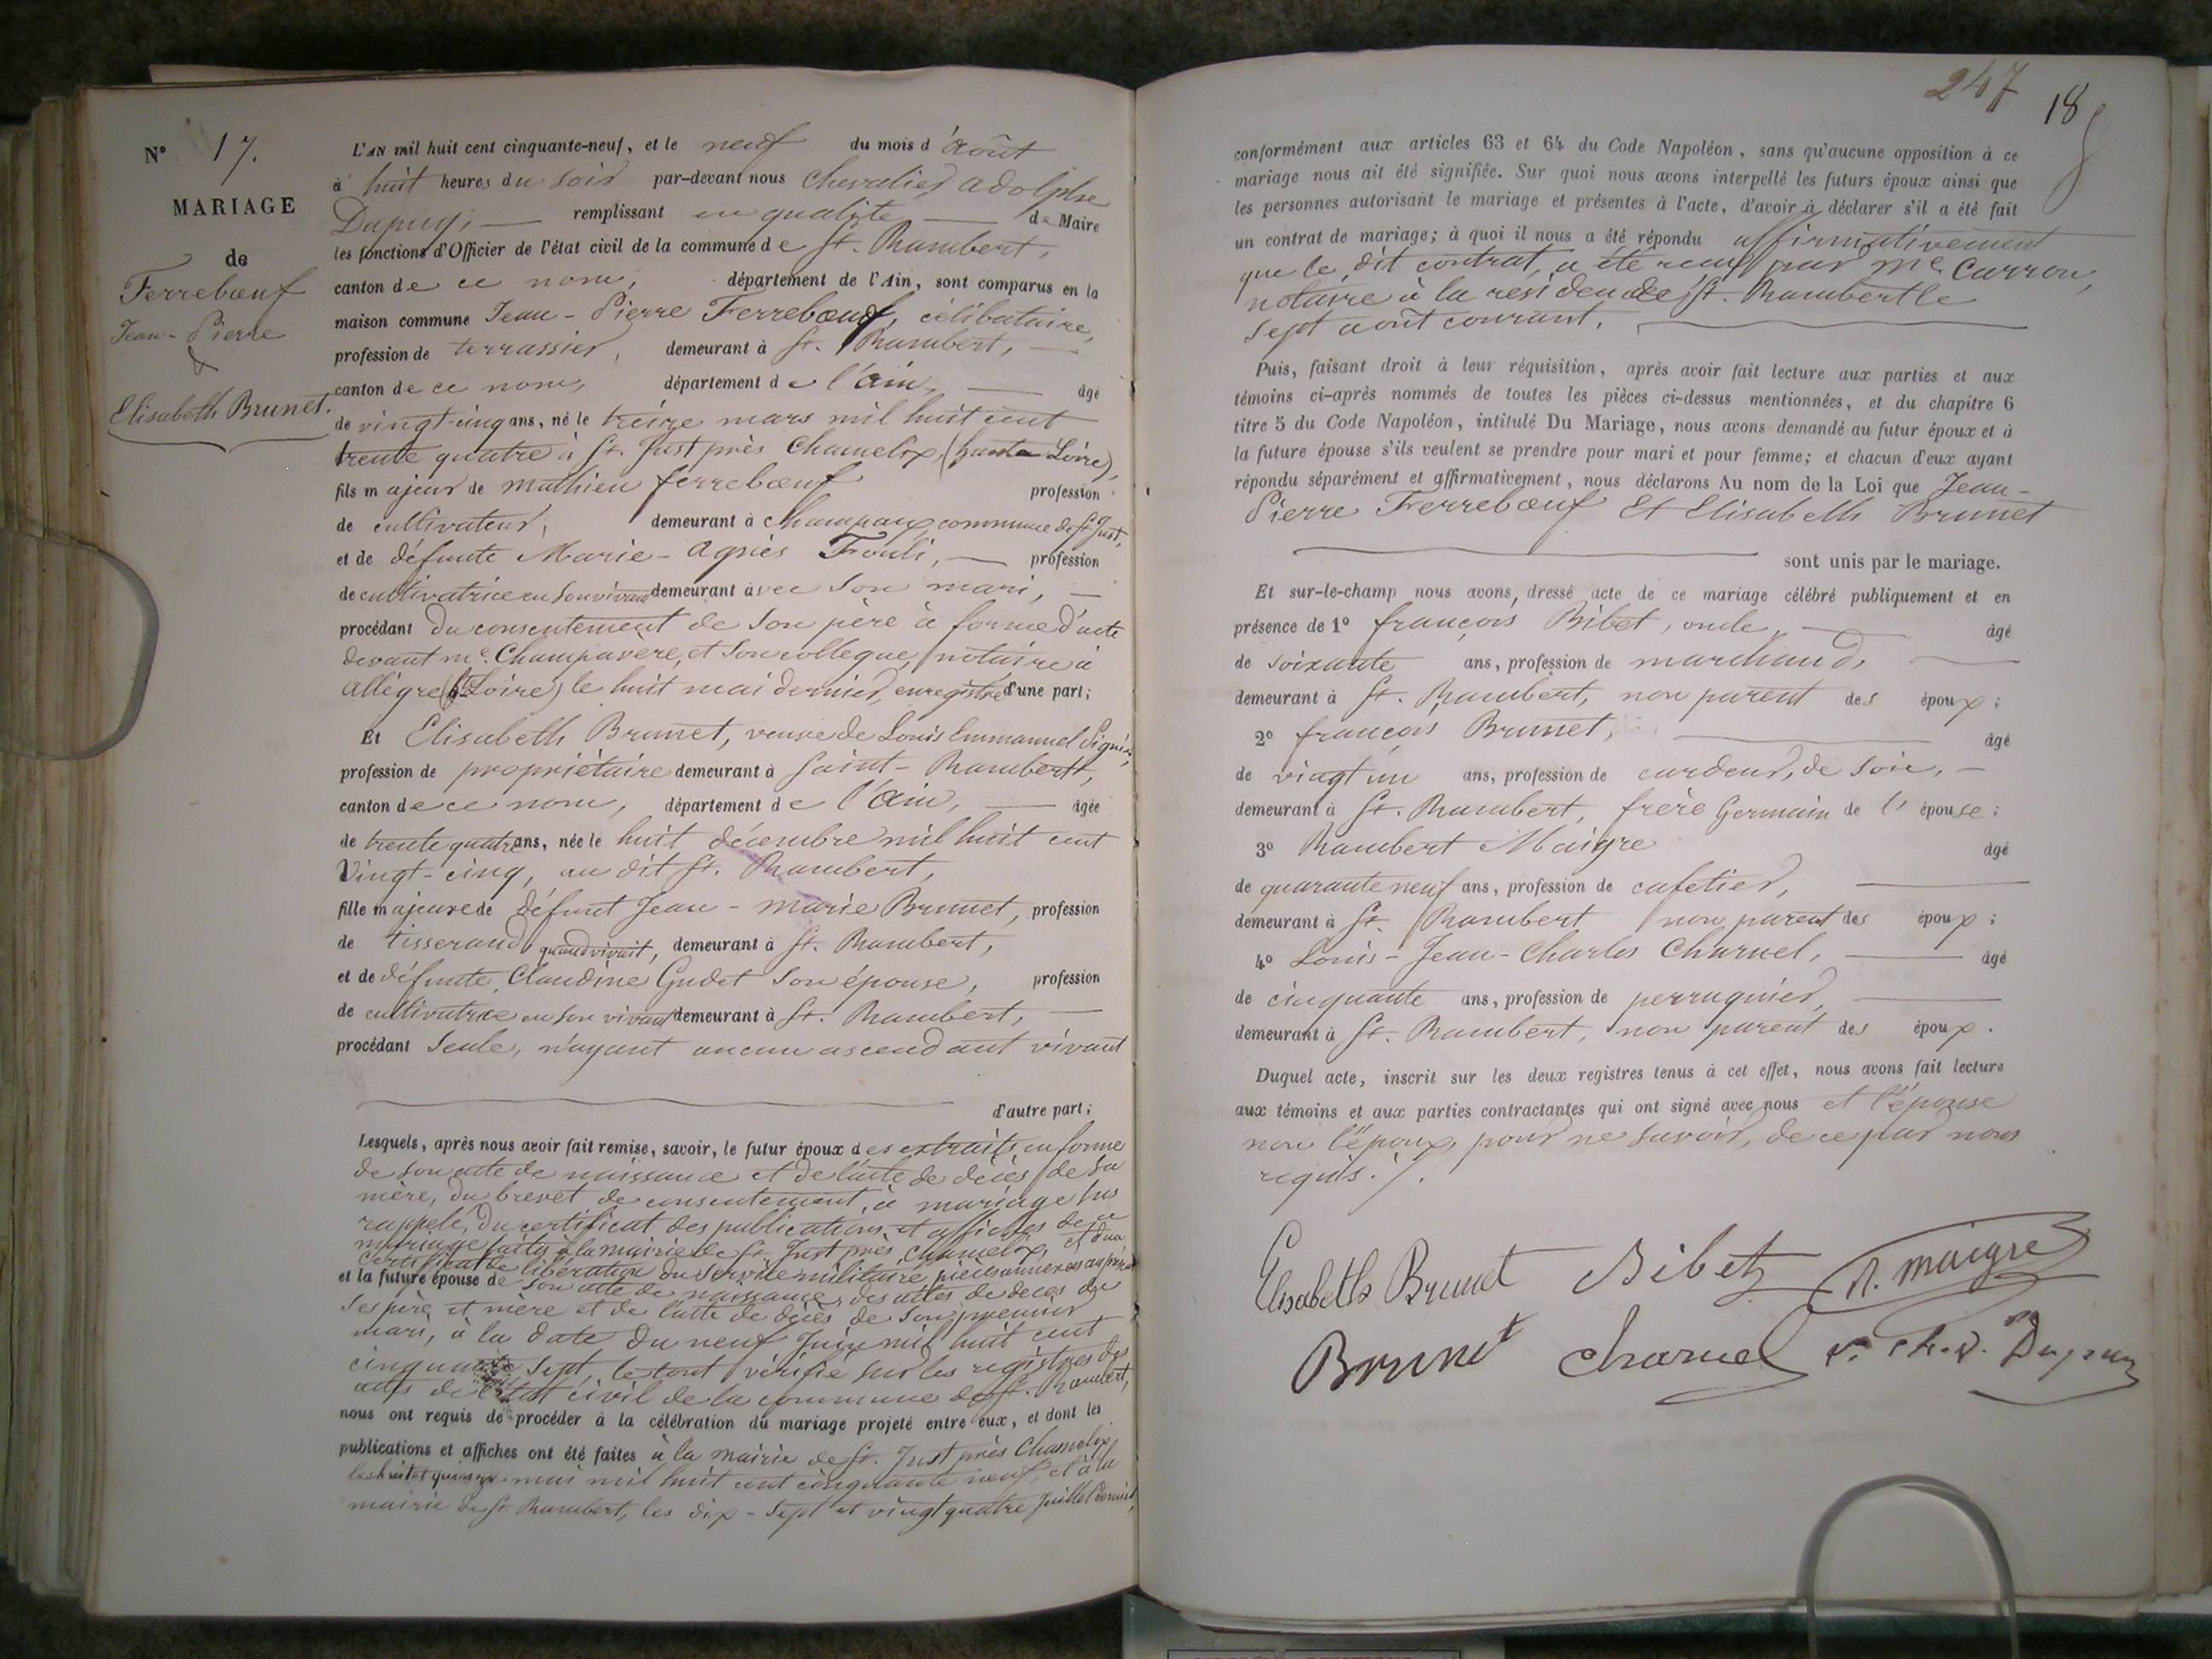 N° 17.
MARIAGE
de
Ferrebœuf
Jean-Pierre
&
Elisabeth Brunet.
L'AN mil huit cent cinquante-neuf, et le neuf du mois d'Août
à huit heures du soir par-devant nous Chevalier Adolphe
Dupuy, remplissant en qualité de Maire
les fonctions d'Officier de l'état civil de la commune de St. Rambert,
canton de ce nom, département de l'Ain, sont comparus en la
maison commune Jean-Pierre Ferrebœuf, célibataire,
profession de terrassier, demeurant à St. Rambert,
canton de ce nom, département de l'ain, âgé
de vingt-cinq ans, né le treize mars mil huit cent
trente quatre à St. Just près Chamelix, (haute Loire),
fils majeur de mathieu ferrebœuf profession
de cultivateur, demeurant à Champaux commune de St Just,
et de défunte Marie-Agnès Fouli, profession
de cultivatrice en son vivant demeurant avec son mari,
procédant du consentement de son père à forme d'acte
devant me. Champavere, et son collegue, notaire à
allègre (hte Loire) le huit mai dernier, enregistré d'une part;
Et Elisabeth Brunet, veuve de Louis Emmanuel
profession de propriètaire demeurant à Saint-Rambert,
canton de ce nom, département de l'ain, âgée
de trente quatre ans, née le huit décembre mil huit cent
Vingt-cinq, au dit St. Rambert,
fille majeure de défunt Jean-marie Brunet, profession
de tisserand quand vivait, demeurant à St. Rambert,
et de défunte Claudine Gudet son épouse, profession
de cultivatrice en son vivant demeurant à St. Rambert,
procédant Seule, n'ayant aucun ascendant vivant
d'autre part;
Lesquels, après nous avoir fait remise, savoir, le futur époux des extraits en forme
de son acte de naissance et de l'acte de décès de sa
mère, du brevet de consentement à mariage sus
rappelé, du certificat des publications et affiches de ce
mariage faites à la mairie de St. Just près Chamelix, et d'un
certificat de libération du service militaire, pièces annexées
et la future épouse de son acte de naissance, des actes de deces de
ses père et mère et de l'acte de décès de son premier
mari, à la date du neuf Juin mil huit cent
cinquante sept, le tout vérifié sur les registres des
actes de l'état civil de la commune de St. Rambert,
nous ont requis de procéder à la célébration du mariage projeté entre eux, et dont les
publications et affiches ont été faites à la mairie de St. Just près Chamelix,
les huit et quinze mai mil huit cent cinquante neuf, et à la
mairie de St. Rambert, les dix-sept et vingt quatre Juillet dernier,
247 18
conformément aux articles 63 et 64 du Code Napoléon, sans qu'aucune opposition à ce
mariage nous ait été signifiée. Sur quoi nous avons interpellé les futurs époux ainsi que
les personnes autorisant le mariage et présentes à l'acte, d'avoir à déclarer s'il a été fait
un contrat de mariage; à quoi il nous a été répondu affirmativement
que le dit contrat, a été reçu par me. Carron,
notaire à la résidence de St. Rambert le
sept août courant.
Puis, faisant droit à leur réquisition, après avoir fait lecture aux parties et aux
témoins ci-après nommés de toutes les pièces ci-dessus mentionnées, et du chapitre 6
titre 5 du Code Napoléon, intitulé Du Mariage, nous avons demandé au futur époux et à
la future épouse s'ils veulent se prendre pour mari et pour femme; et chacun d'eux ayant
répondu séparément et affirmativement, nous déclarons Au nom de la Loi que Jean-
Pierre Ferrebœuf Et Elisabeth Brunet
sont unis par le mariage.
Et sur-le-champ nous avons, dressé acte de ce mariage célébré publiquement et en
présence de 1° françois Bibet, oncle, âgé
de soixante ans, profession de marchand,
demeurant à St. Rambert, non parent des époux;
2° françois Brunet, âgé
de vingt un ans, profession de cardeur, de soie,
demeurant à St. Rambert, frère Germain de l'épouse;
3° Rambert Maigre âgé
de quarante neuf ans, profession de cafetier,
demeurant à St. Rambert non parent des époux;
4° Louis-Jean-Charles Charvel, âgé
de cinquante ans, profession de perruquier,
demeurant à St. Rambert, non parent des époux.
Duquel acte, inscrit sur les deux registres tenus à cet effet, nous avons fait lecture
aux témoins et aux parties contractantes qui ont signé avec nous et l'épouse
non l'époux, pour ne savoir, de ce par nous
requis./.
Elisabeth Brunet Bibet R. maigre
Brunet Charvel Dupuy